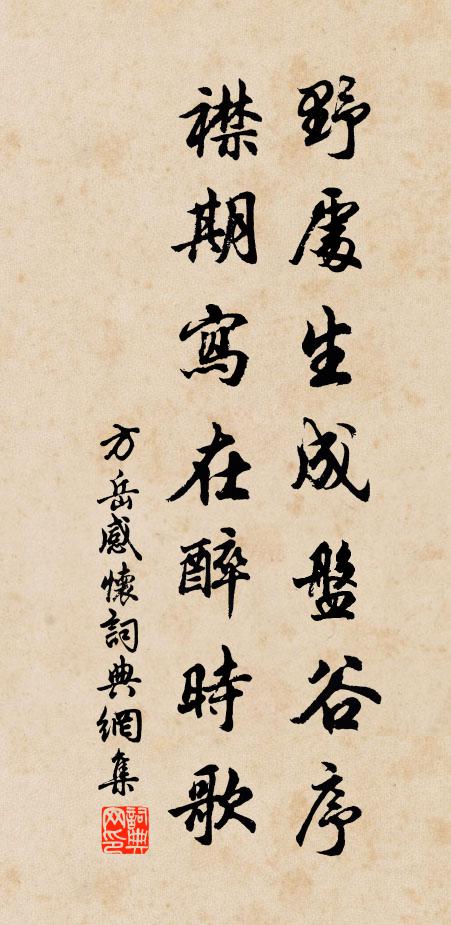 野處生成盤谷序
襟期寫在醉時歌
方岳感懷詞典網集
詞典網印